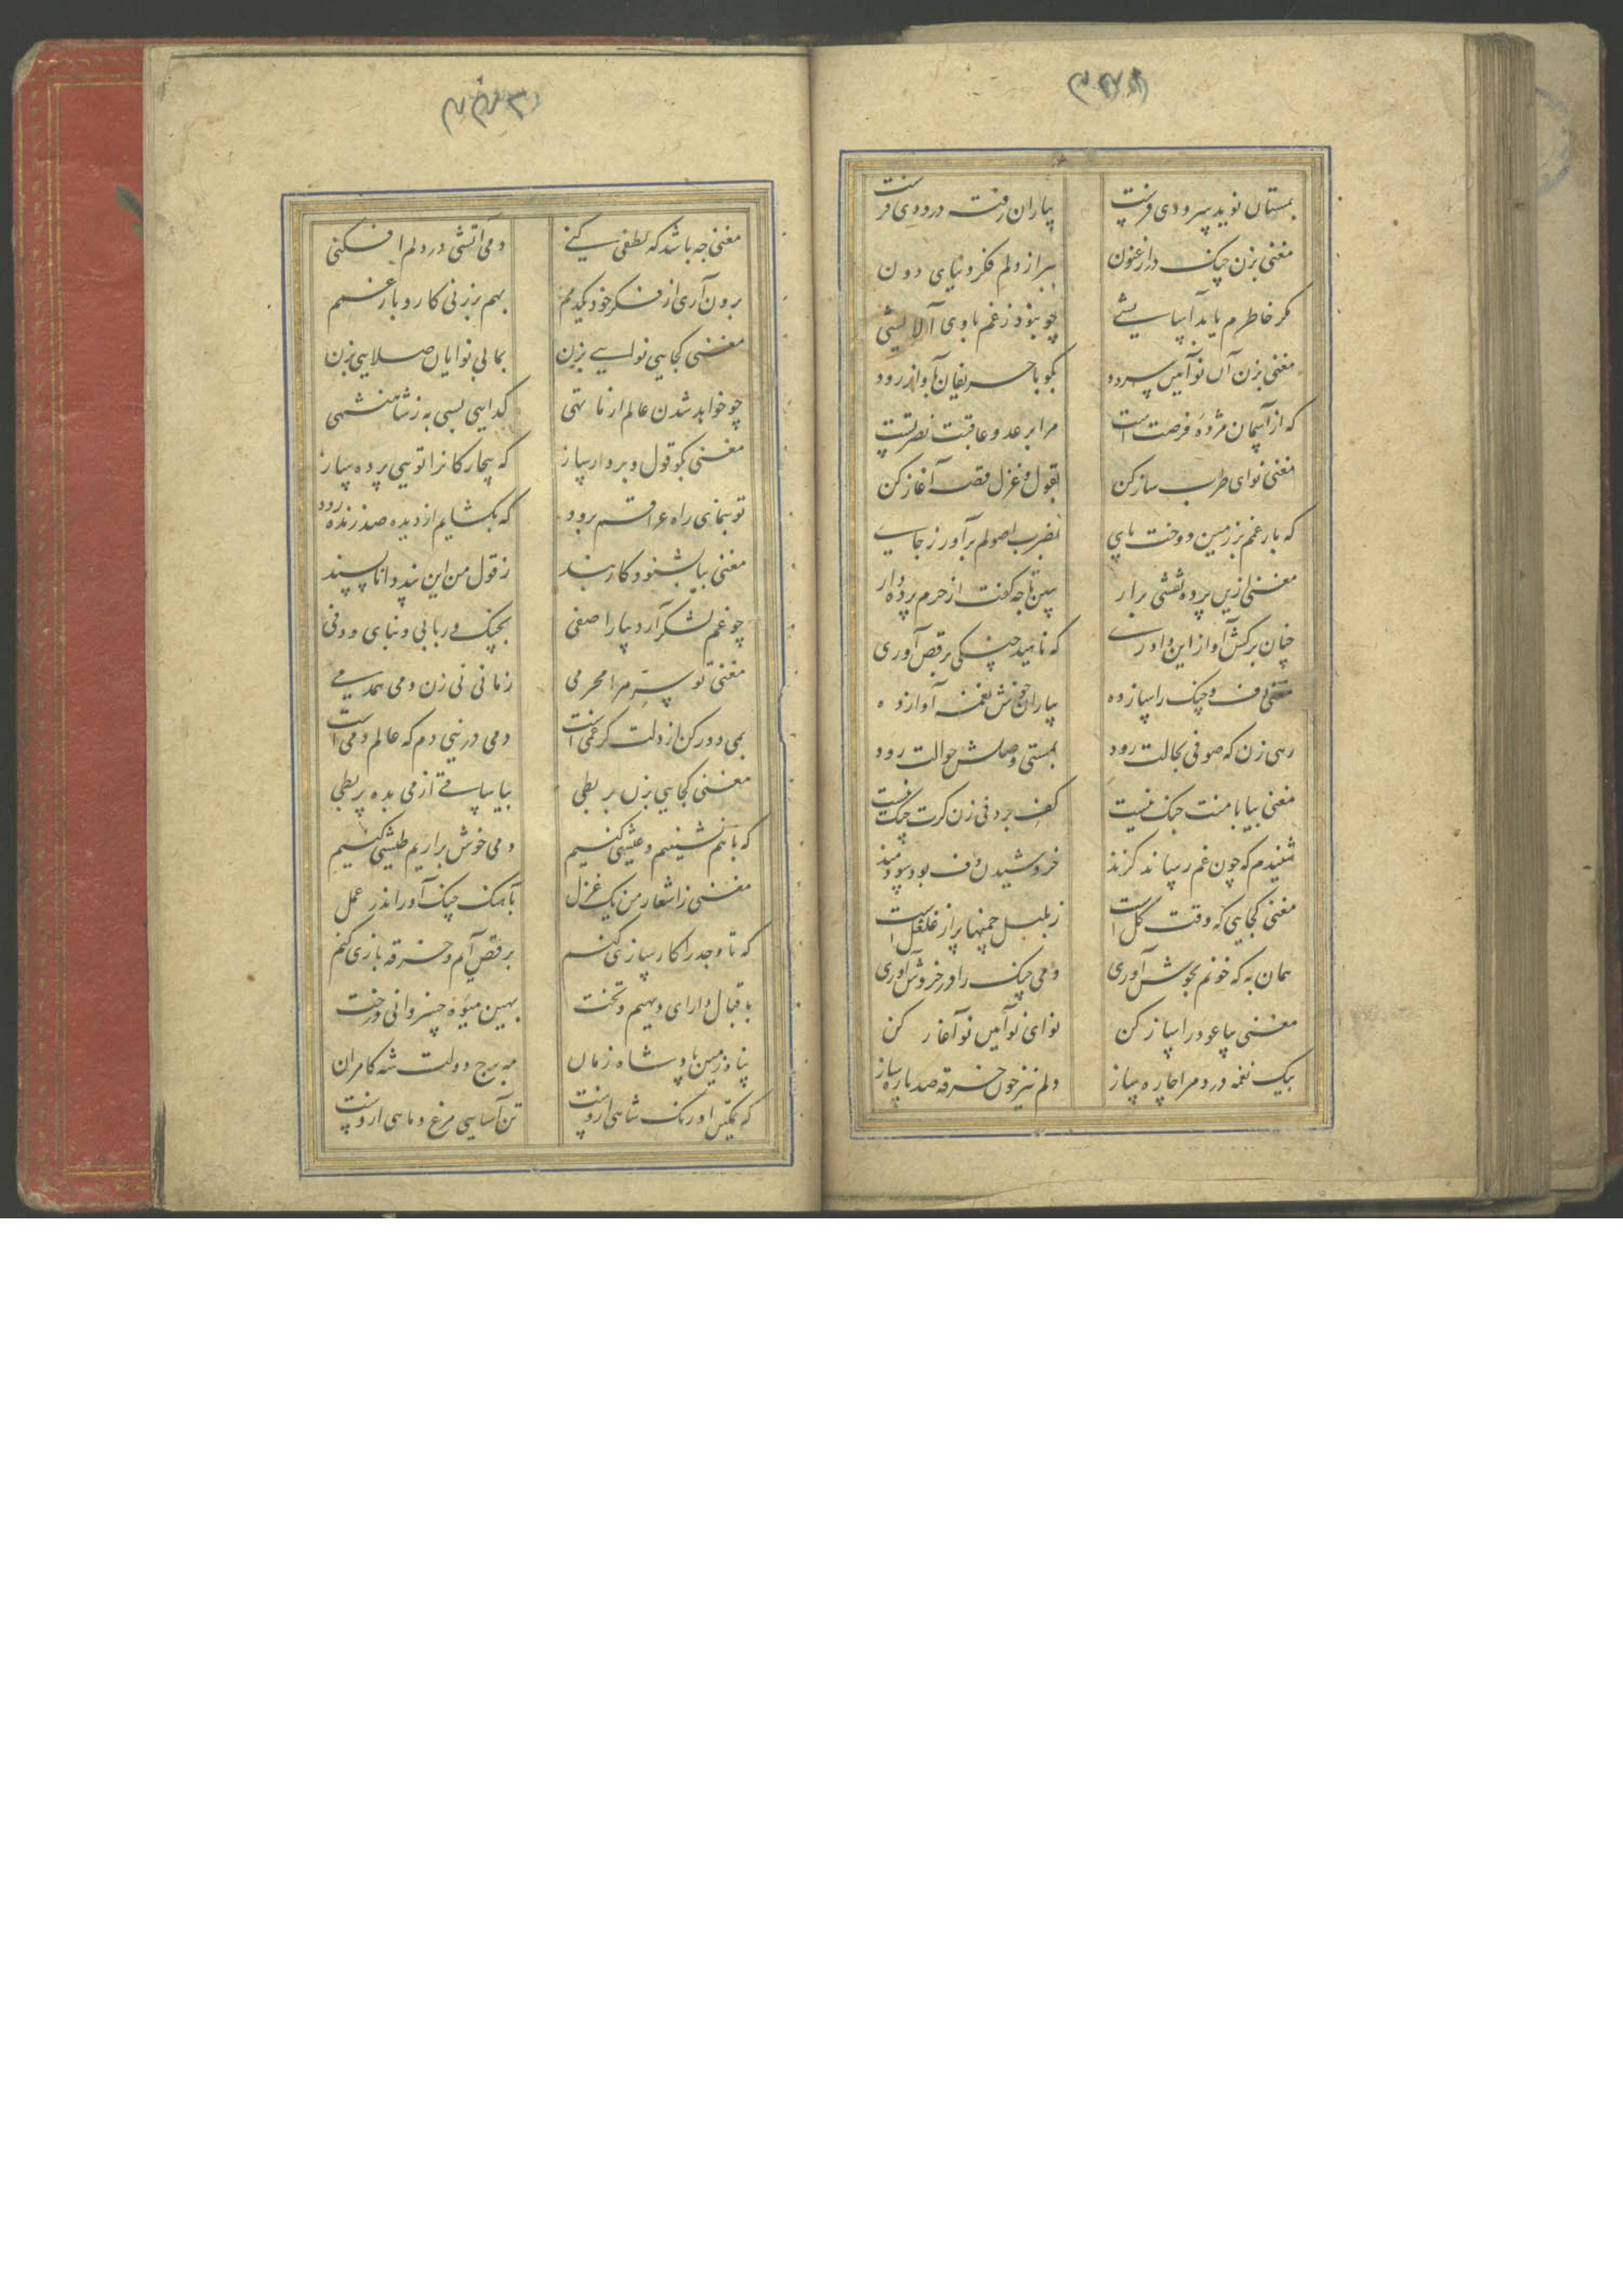 بمستان نوید سرودی فرست
بیاران رفته درودی فرست
مغنی بزن چنک در ارغنون
ببر از دلم فکر دنیای دون
مکر خاطرم یابد آسایشی
چو نبود ز غم باوی آلایشی
مغنی بزن آن نوآیین سرود
بکو با حریفان بآواز رود
که از آسمان مژده فرصت است
مرا بر عدو عاقبت نصرتست
مغنی نوای طرب ساز کن
بقول و غزل قصه آغاز کن
که بار غم بر زمین دوخت پای
بضرب اصولم برآور ز جای
مغنی ازین پرده نقشی برار
ببین تا چه گفت از حرم پرده دار
چنان برکش آواز این داوری
که ناهید چنکی برقص آوری
مغنی دف و چنک را ساز ده
بیاران خوش نغمه آواز ده
رهی زن که صوفی بحالت رود
بمستی وصلش حوالت رود
مغنی بیا با منت جنک نیست
کف بر دفی زن کرت چنک نیست
شنیدم که چون غم رساند کزند
خروشیدن دف بود سودمند
مغنی کجایی که وقت کل است
ز بلبل چمنها پر از غلغل است
همان به که خونم بجوش آوری
دمی چنک را در خروش آوری
مغنی بیا عود را ساز کن
نوای نوآیین نو آغاز کن
بیک نغمه درد مرا چاره ساز
دلم نیز چون خرقه صد پاره ساز
مغنی چه باشد که لطفی کنی
دمی آتشی در دلم افکنی
برون آری از فکر خود یکدمم
بهم برزنی کار و بار غمم
مغنی کجایی نوایی بزن
بما بی نوایان صلایی بزن
چو خواهد شدن عالم از ما تهی
کدایی بسی به ز شاهنشهی
مغنی بکو قول و بردار ساز
که بیچارکانرا تویی پرده ساز
تو بنمای راه عراقم برود
که بکشایم از دیده صد زنده رود
مغنی بیا بشنو و کار بند
ز قول من این پند دانا پسند
چو غم لشکر آرد بیارا صفی
بچنک و ربابی و بنای و دفی
مغنی تو سر مرا محرمی
زمانی نی زن دمی همدمی
بمی دور کن از دلت کر غمی است
دمی در نیی دم که عالم دمی است
مغنی کجایی بزن بربطی
بیا ساقی از می بده پر بطی
که با هم نشینیم و عیشی کنیم
دمی خوش براریم طیشی کنیم
مغنی ز اشعار من یک غزل
بآهنک چنک آور اندر عمل
که تا وجد را کارسازی کنم
برقص آیم و خرقه بازی کنم
باقبال دارای دیهیم و تخت
بهین میوه خسروانی درخت
پناه زمین پادشاه زمان
مه برج دولت شه کامران
که تمکین اورنک شاهی ازوست
تن آسایی مرغ و ماهی ازوست